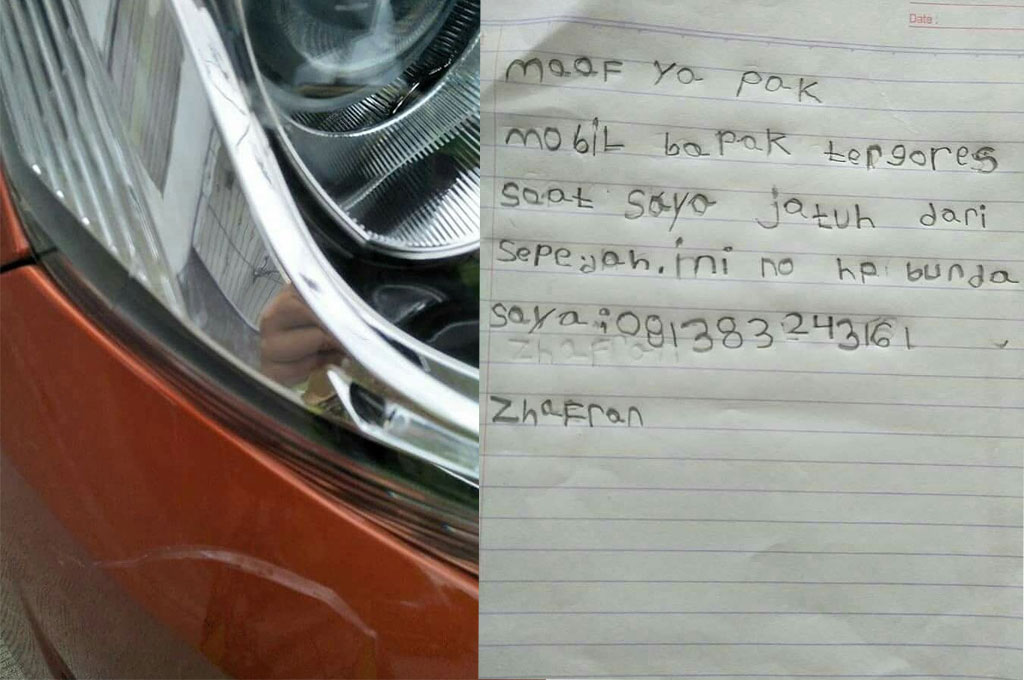 Date :
maaf ya pak
mobil bapak tergores
saat saya jatuh dari
sepedah. ini no hp bunda
saya : 081383243161
Zhafran
Zhafran